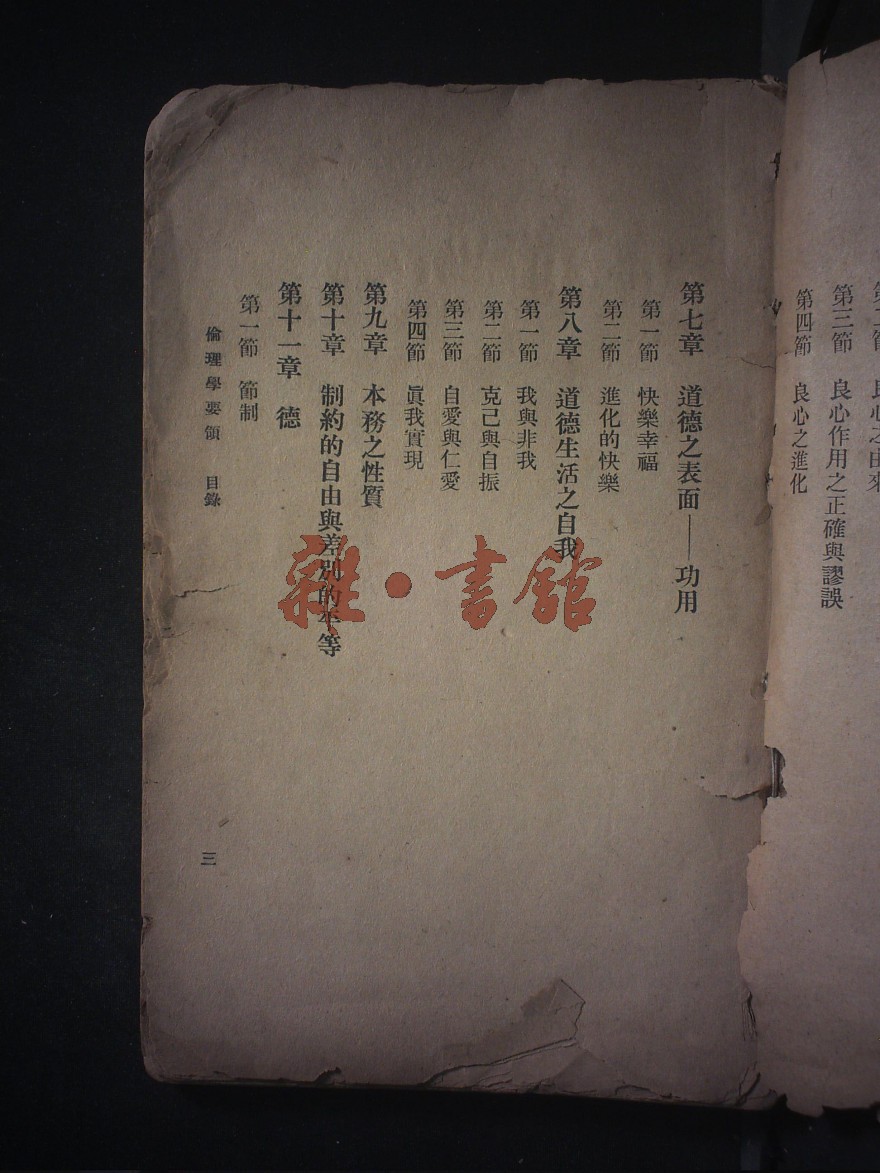 第三節　良心作用之正確與謬誤
第四節　良心之進化
第七章　道德之表面——功用
第一節　快樂幸福
第二節　進化的快樂
第八章　道德生活之自我
第一節　我與非我
第二節　克己與自振
第三節　自愛與仁愛
第四節　眞我實現
第九章　本務之性質
第十章　制約的自由與差別的平等
第十一章　德
第一節　節制
倫理學要領　目錄
三
雜·書館